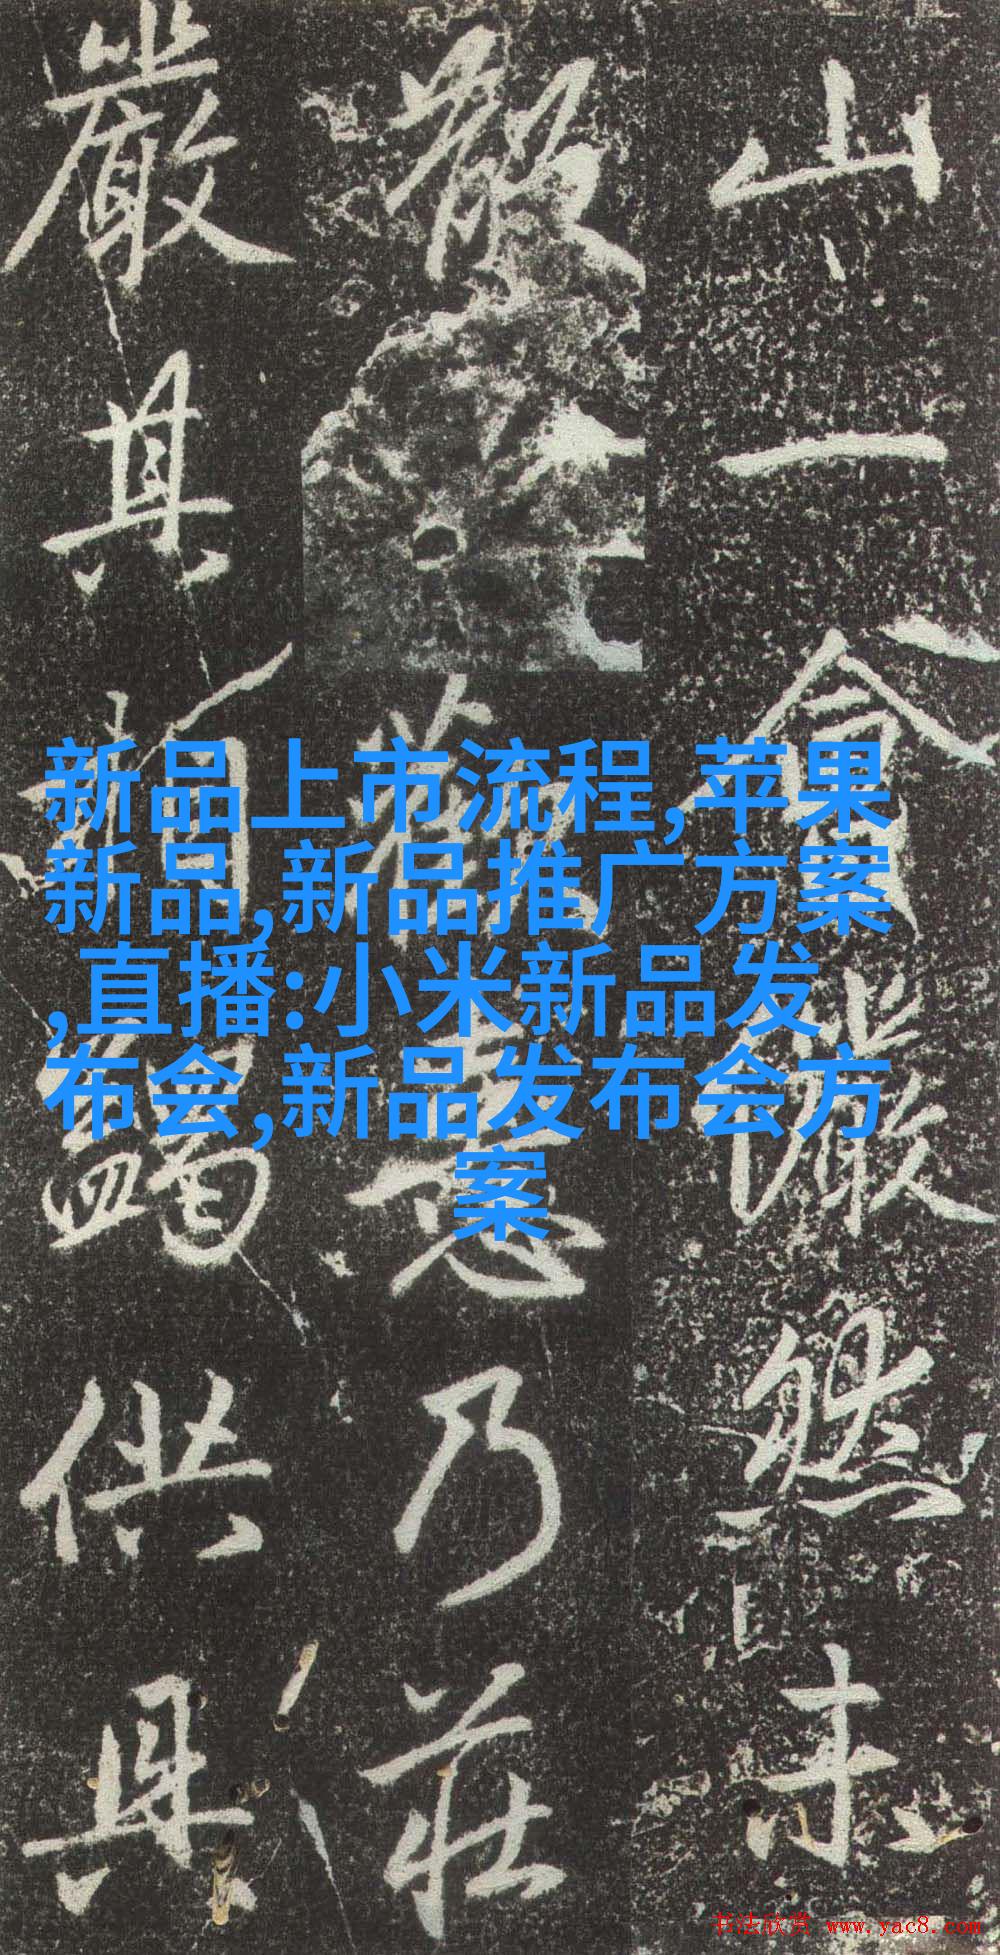 山一會儼然未
散 乃莊
嚴其 供具
新品上市流程,苹果
新品,新品推广方案
,直播:小米新品发
布会,新品发布会方
案
书法欣赏 www.yac8.com